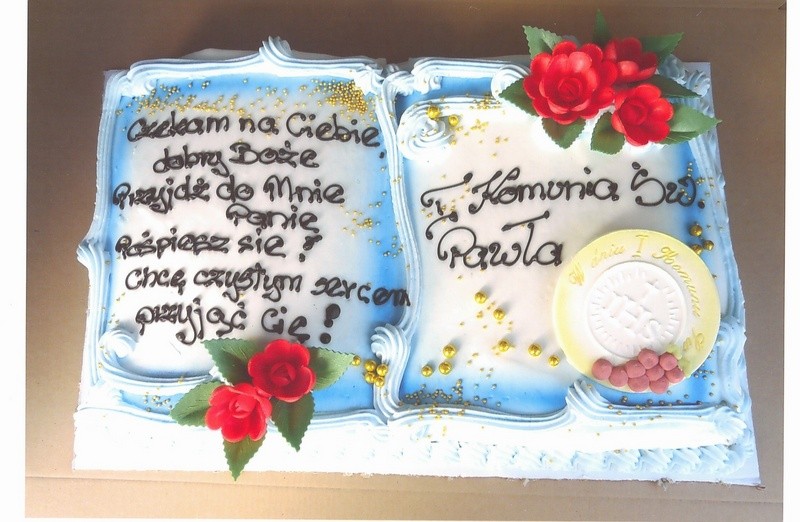 Czekam na Ciebie
dobry Boże
Przyjdź do Mnie
Panie
Pośpiesz się !
Chcę czystym sercem
przyjąć Cię !
I Komunia Św.
Pawła
W dniu I Komunii Św
IHS